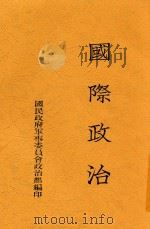 國際政治
國民政府軍事委員會政治部編印
www.mtoou.info